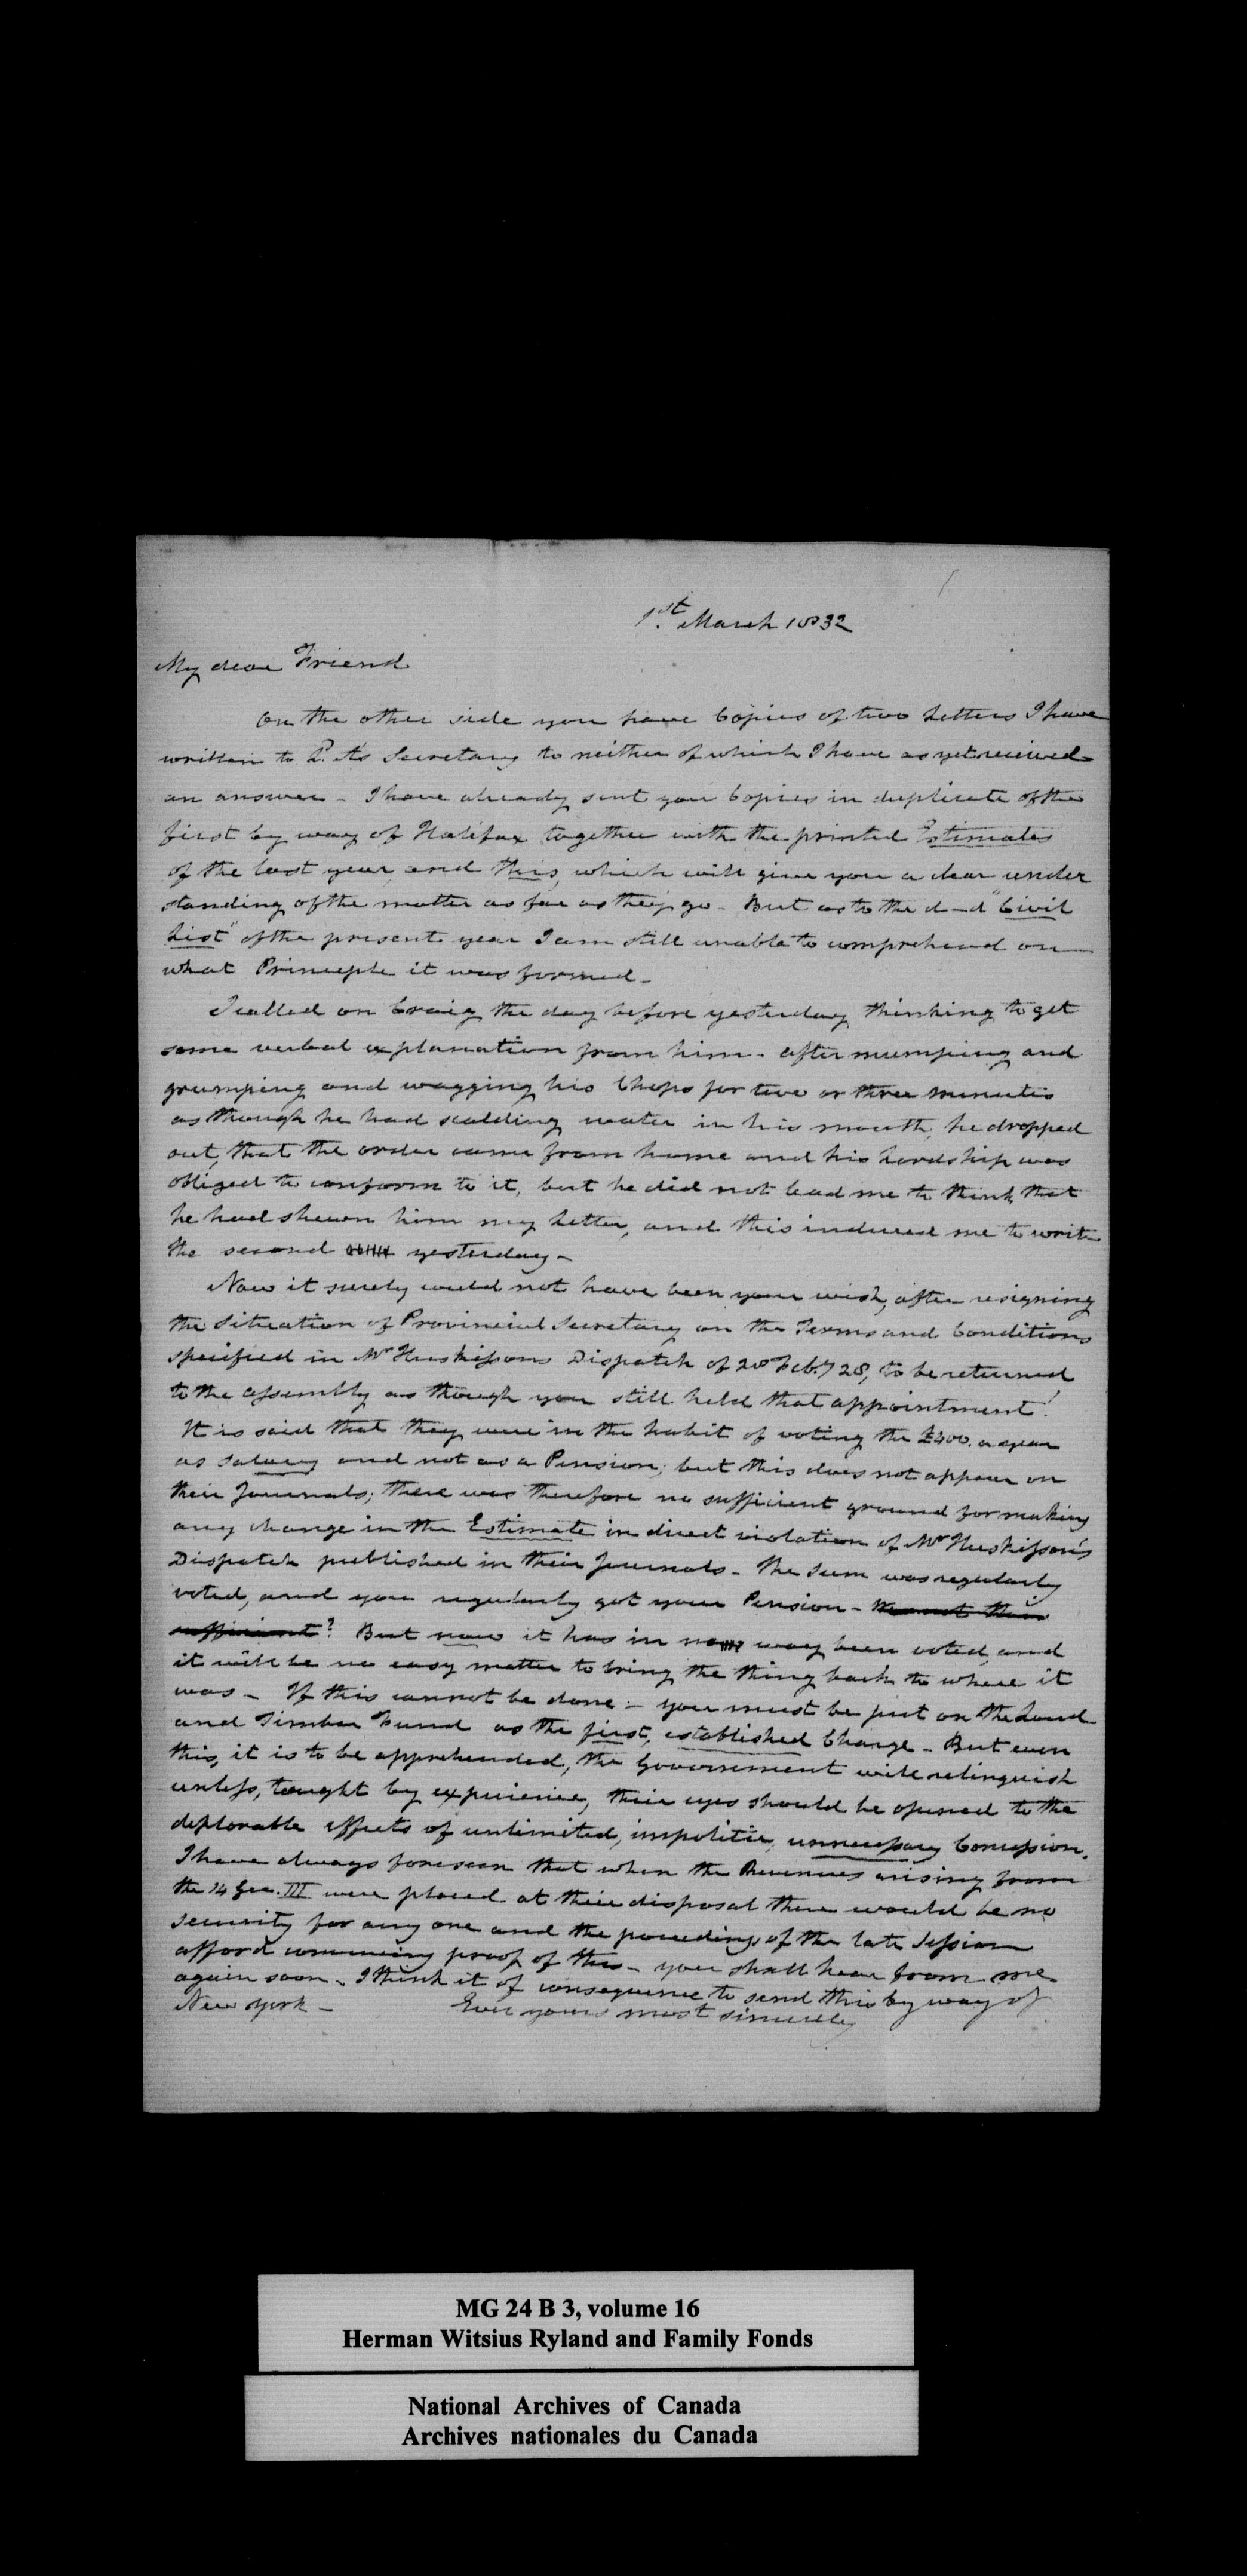 1st. March 1832
My dear Friend
On the other side you have Copies of two Letters I have
written to L. A's Secretary to neither of which I have as yet received
an answer - I have already sent you Copies in duplicate of the
first by way of Halifax together with the printed Estimates
of the last year, and this, which will give you a clear under
standing of the matter as far as they go - But as to the d--d "Civil
List" of the present year I am still unable to comprehend on
what Principle it was formed -
I called on Craig the day before yesterday thinking to get
some verbal explanation from him - after mumping and
grumping and wagging his Chops for two or three minutes
as though he had scalding water in his mouth, he dropped
out, that the order came from home and his Lordship was
obliged to conform to it, but he did not lead me to think that
he had shewn him my Letter, and this induced me to write
the second yesterday -
Now it surely could not have been your wish, after resigning
the situation of Provincial Secretary on the Terms and Conditions
specified in Mr Huskissons Dispatch of 20 Feb.y 28, to be returned
to the Assembly as though you still held that appointment!
It is said that they were in the habit of voting the £400. a year
as Salary and not as a Pension; but this does not appear on
their Journals; there was therefore no sufficient ground for making
any change in the Estimate in direct violation of Mr Huskisson's
Dispatch published in their Journals - The Sum was regularly
voted, and you regularly got your Pension - Was not this
sufficient? But now it has in no way been voted, and
it will be no easy matter to bring the thing back to where it
was - If this cannot be done - you must be put on the Land
and Timber Fund as the first, established Charge - But even
this, it is to be apprehended, the Government will relinquish
unless, taught by experience, their eyes should be opened to the
deplorable effects of unlimited, impolitic, unnecessary Concession.
I have always foreseen that when the Revenues arising from
the 14 Geo. III were placed at their disposal there would be no
security for any one and the proceedings of the late Session
afford convincing proof of this - you shall hear from me
again soon - I think it of consequence to send this by way of
New York -
Ever yours most sincerely
MG 24 B 3, volume 16
Herman Witsius Ryland and Family Fonds
National Archives of Canada
Archives nationales du Canada